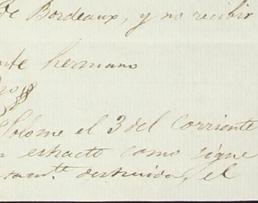 de Bordeaux, y no recibir
hermano
el 3 del corriente
estracto como sigue
destruida, el